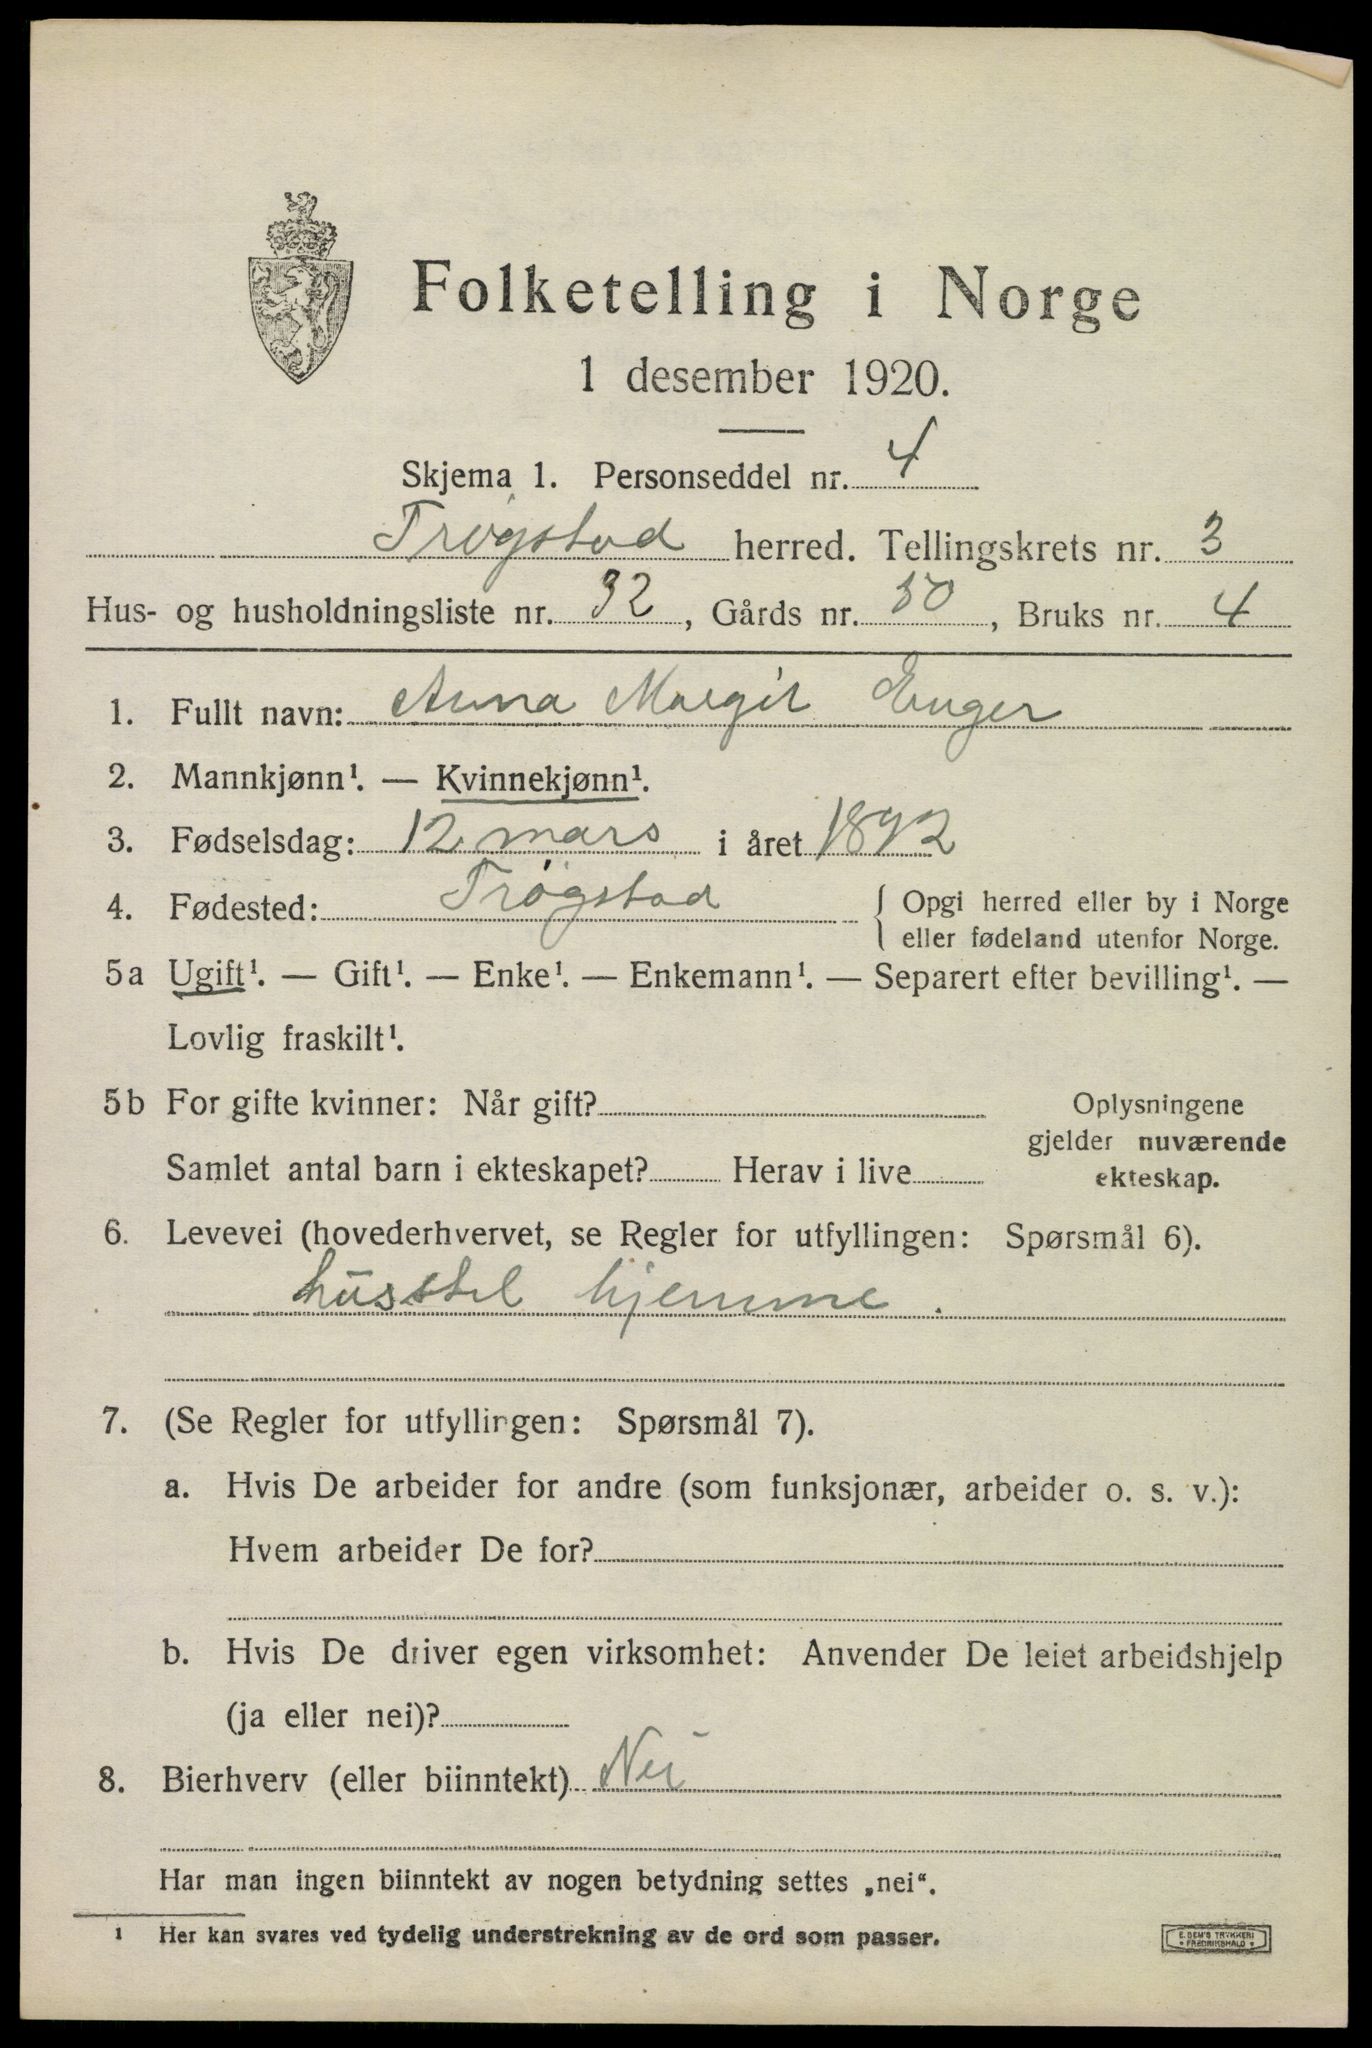 Folketelling i Norge
1 desember 1920.
Skjema 1. Personseddel nr. 4
Trøgstad herred. Tellingskrets nr. 3
Hus- og husholdningsliste nr. 32, Gårds nr. 50, Bruks nr. 4
1. Fullt navn: Anna Margit Enger
2. Mannkjønn¹. — Kvinnekjønn¹.
3. Fødselsdag: 12 mars i året 1892
4. Fødested: Trøgstad { Opgi herred eller by i Norge
eller fødeland utenfor Norge.
5a Ugift¹. — Gift¹. — Enke¹. — Enkemann¹. — Separert efter bevilling¹. —
Lovlig fraskilt¹.
5b For gifte kvinner: Når gift? Oplysningene
gjelder nuværende
Samlet antal barn i ekteskapet? Herav i live ekteskap.
6. Levevei (hovederhvervet, se Regler for utfyllingen: Spørsmål 6).
husstel hjemme.
7. (Se Regler for utfyllingen: Spørsmål 7).
a. Hvis De arbeider for andre (som funksjonær, arbeider o. s. v.):
Hvem arbeider De for?
b. Hvis De driver egen virksomhet: Anvender De leiet arbeidshjelp
(ja eller nei)?
8. Bierhverv (eller biinntekt) Nei
Har man ingen biinntekt av nogen betydning settes „nei“.
¹ Her kan svares ved tydelig understrekning av de ord som passer.
E. SEM'S TRYKKERI
• FREDRIKSHALD •